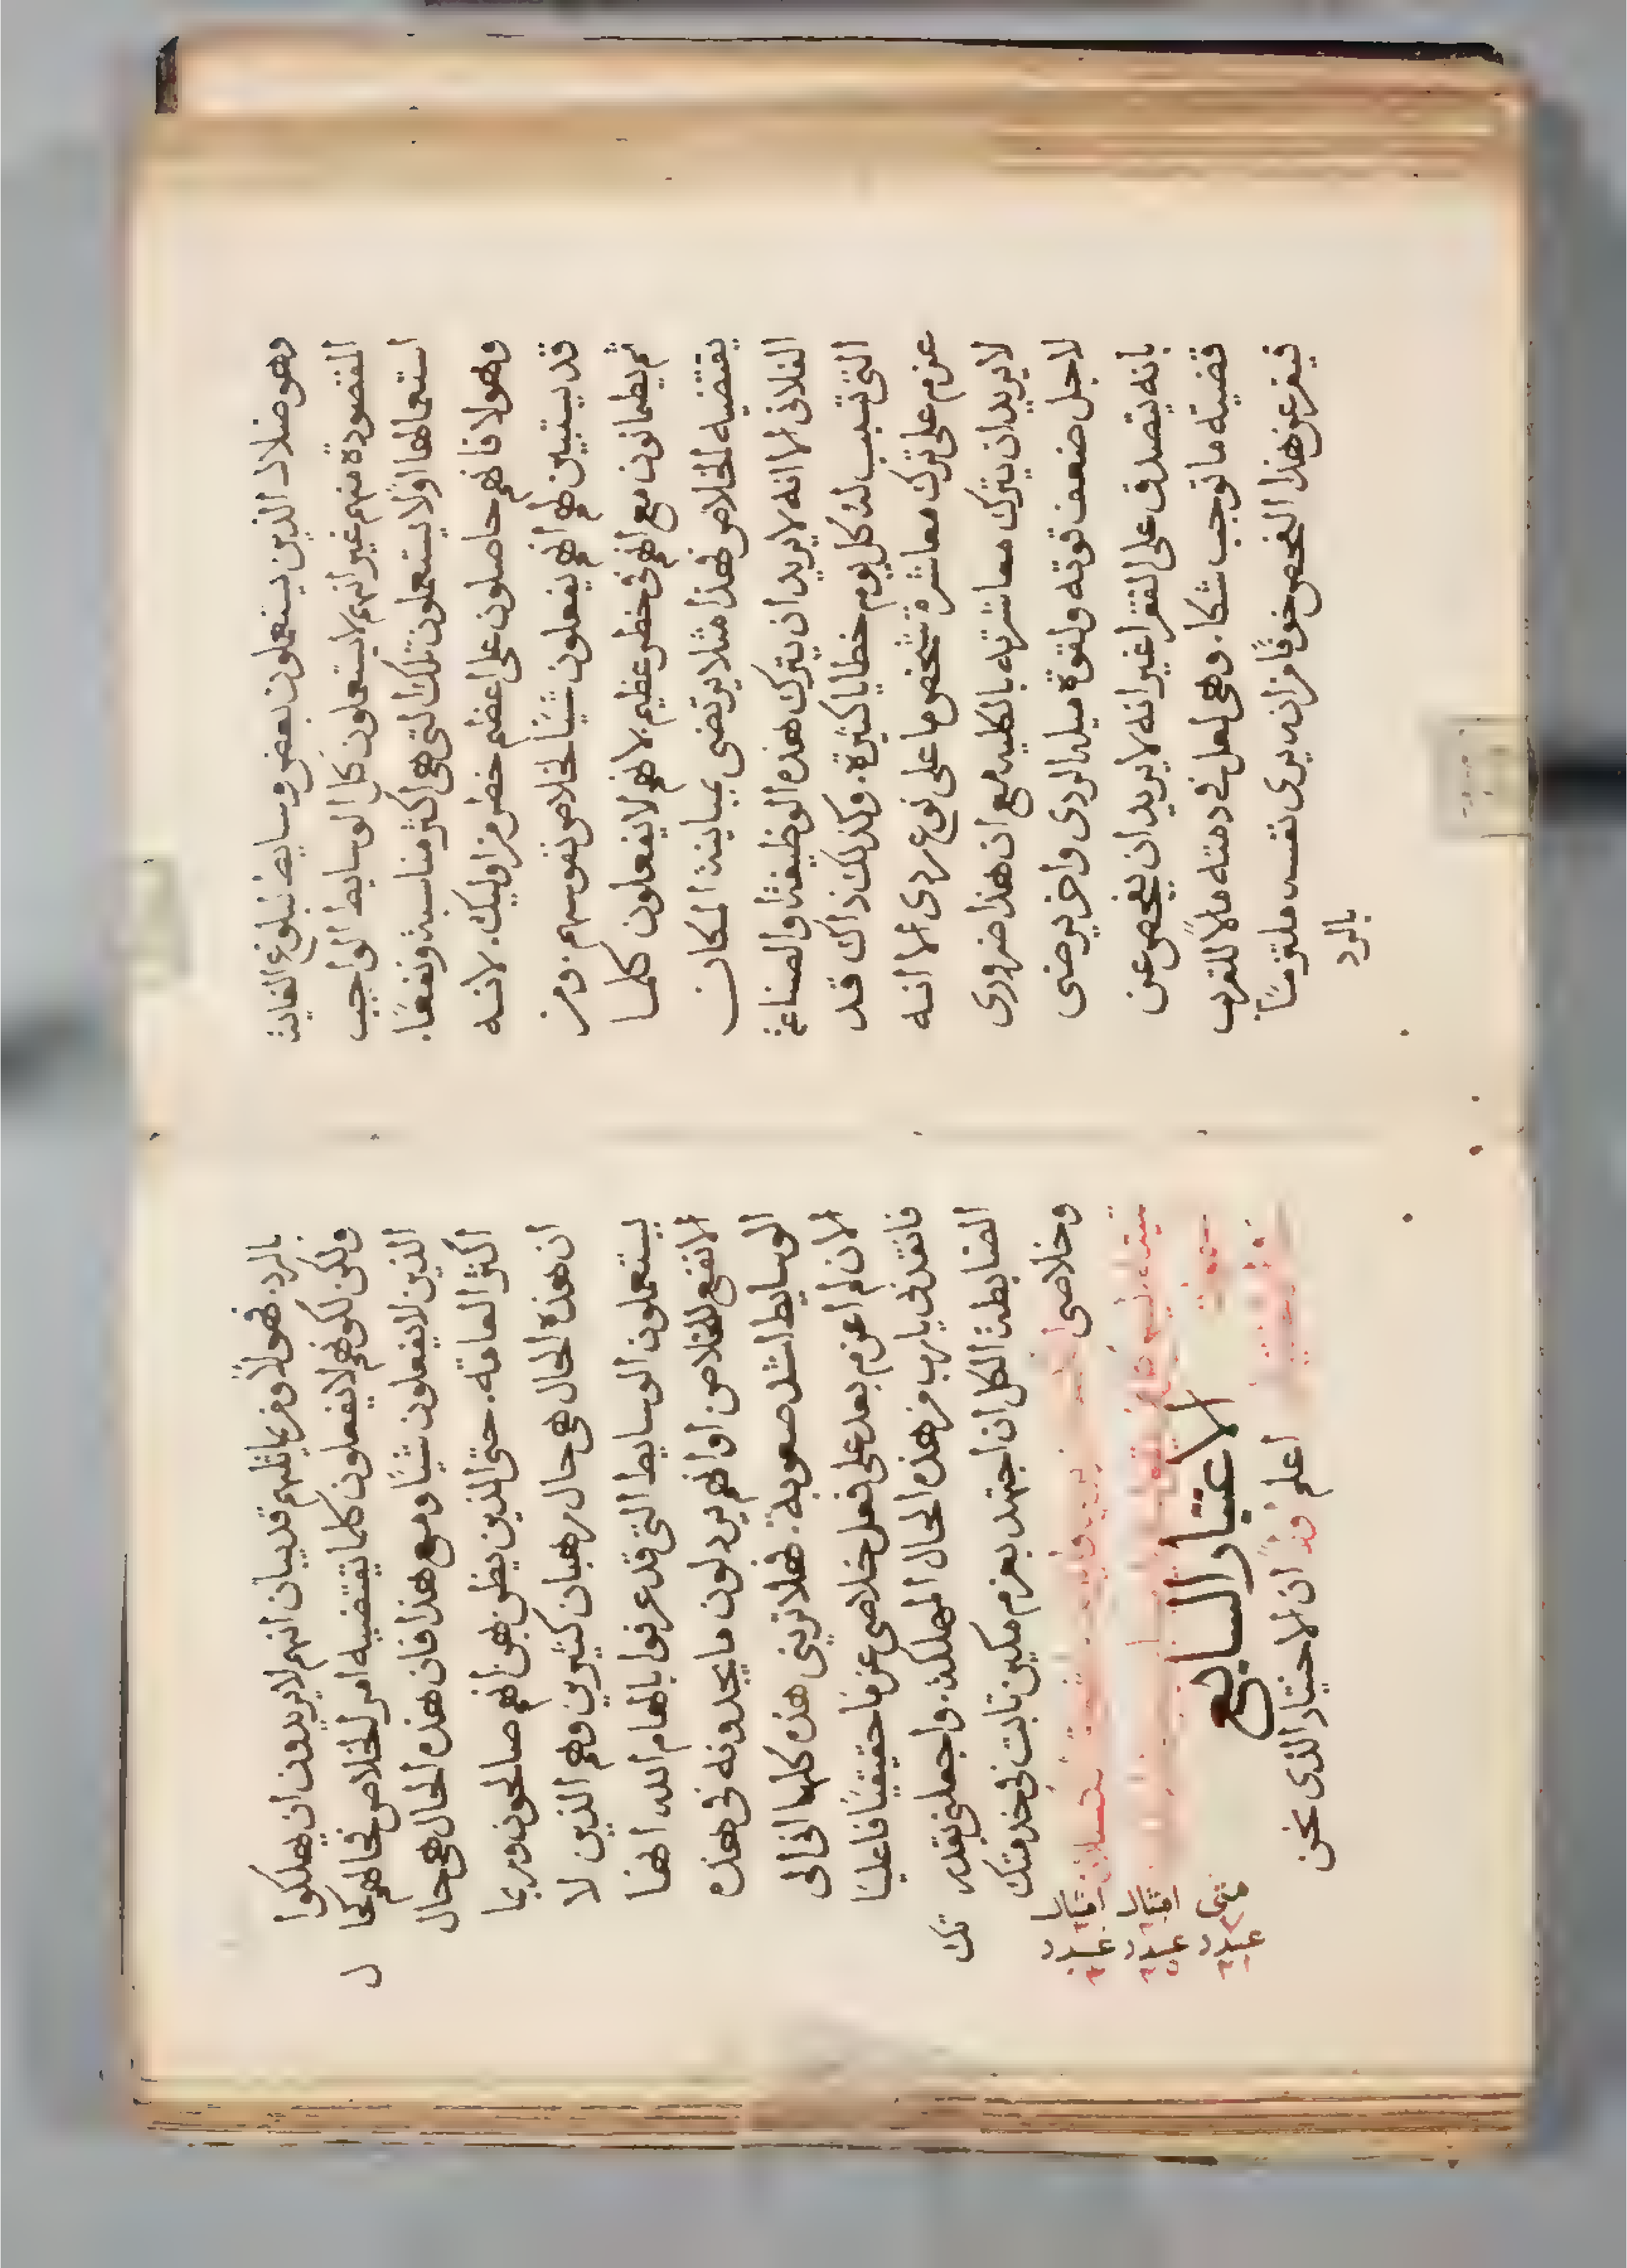 وهو ضلال الذين يستعملون بعض وسايط لبلوغ الغاية
المقصودة منهم غير انهم لا يستعملون كل الوسايط الواجب
استعمالها اولا يستعملون تلك التي هي اكثر مناسبة ونفعًا.
وهولا فانهم حاصلون على اعظم خطر من اوليك. لانه
قد يستبين لهم انهم يفعلون شيًا لخلاص نفوسهم. ومن
ثم يطمانون مع انهم في خطر عظيم. لانهم لا يفعلون كلما
يقتضيه الخلاص فهذا مثلا يرتضى بمباينة المكان
الفلاني الا انه لا يريد ان يترك هذه الوظيفة او الصناعة
التي تسبب له كل يوم خطايا كثيرة. وكذلك ذاك قد
عزم على ترك معاشرة شخص ما على نوع ردى الا انه
لا يريد ان يترك معاشرته بالكليه مع ان هذا ضروري
لاجل ضعف قوته ولقوة ميله الردى واخر يرضى
بانه يتصدق على الفقرا غير انه لا يريد ان يفحص عن
قضيته ما توجب شكا. وهي لعل في دمته مالاً للقريب
فيفر عن هذا الفحص خوفًا من انه يرى نفسه ملتزمًا
بالرد
بالرد. فهولا وغر يماثلهم قد يبان انهم لا يريدون ان يهلكوا
ولكن لكونهم لا يفعلون كلما يقتضيه امر الخلاص فحالهم كحال
الذين لا يفعلون شيًا ومع هذا فان هذه الحال هي حال
اكثر العامة. حتى الذين يظن بهن انهم صالحون وربما
ان هذه الحال هي حال رهبان كثيرين وهم الذين لا
يستعملون الوسايط التي قد عرفوا بالهام الله انها
الانفع للخلاص او انهم يردلون ما يجدونه في هذه
الوسايط اشد صعوبة. فهلا تريني هذه كلها اني الى
الان لم اعزم بعد على فعل خلاصي عزمًا حقيقيًا فاعليًا
فانقذني يا رب من هذه الحال المهلكة. واجعلني بقدرتك
الضابطة الكل ان اجتهد بعزم مكين ثابت في خدمتك
وخلاصي
الاعتبار السابع
اعلم اولاً ان الاختيار الذي نحن